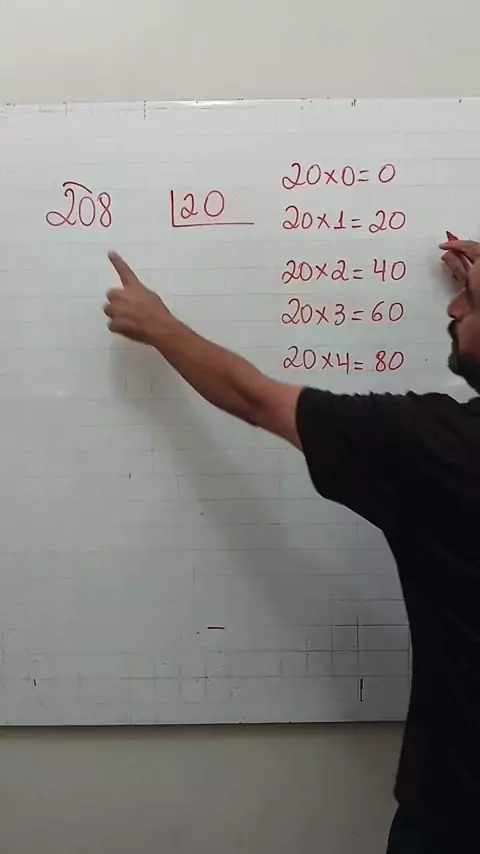 208 20
20×0=0
20×1=20
20×2=40
20×3=60
20×4=80